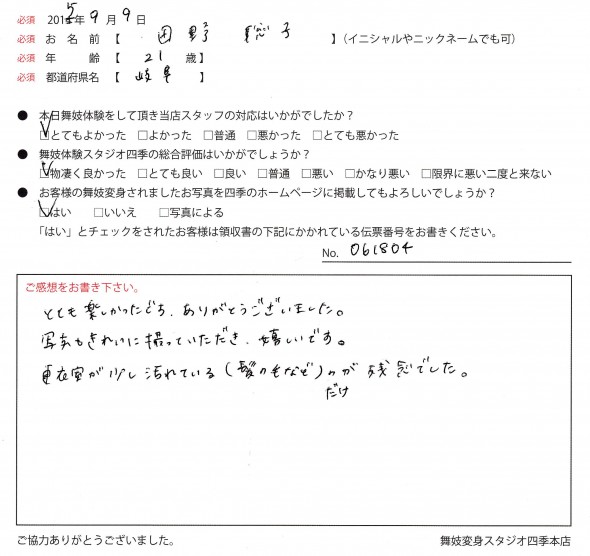 必須 2015年9月9日
必須 お名前【 田野 聡子 】(イニシャルやニックネームでも可)
必須 年齢【 21 歳】
必須 都道府県名【 岐阜 】
● 本日舞妓体験をして頂き当店スタッフの対応はいかがでしたか?
□とてもよかった □よかった □普通 □悪かった □とても悪かった
● 舞妓体験スタジオ四季の総合評価はいかがでしょうか?
□物凄く良かった □とても良い □良い □普通 □悪い □かなり悪い □限界に悪い二度と来ない
● お客様の舞妓変身されましたお写真を四季のホームページに掲載してもよろしいでしょうか?
□はい □いいえ □写真による
「はい」とチェックをされたお客様は領収書の下記にかかれている伝票番号をお書きください。
No. 061804
ご感想をお書き下さい。
とても楽しかったです、ありがとうございました。
写真もきれいに撮っていただき、嬉しいです。
更衣室が少し汚れている(髪の毛など)のが 残念でした。
だけ
ご協力ありがとうございました。 舞妓変身スタジオ四季本店